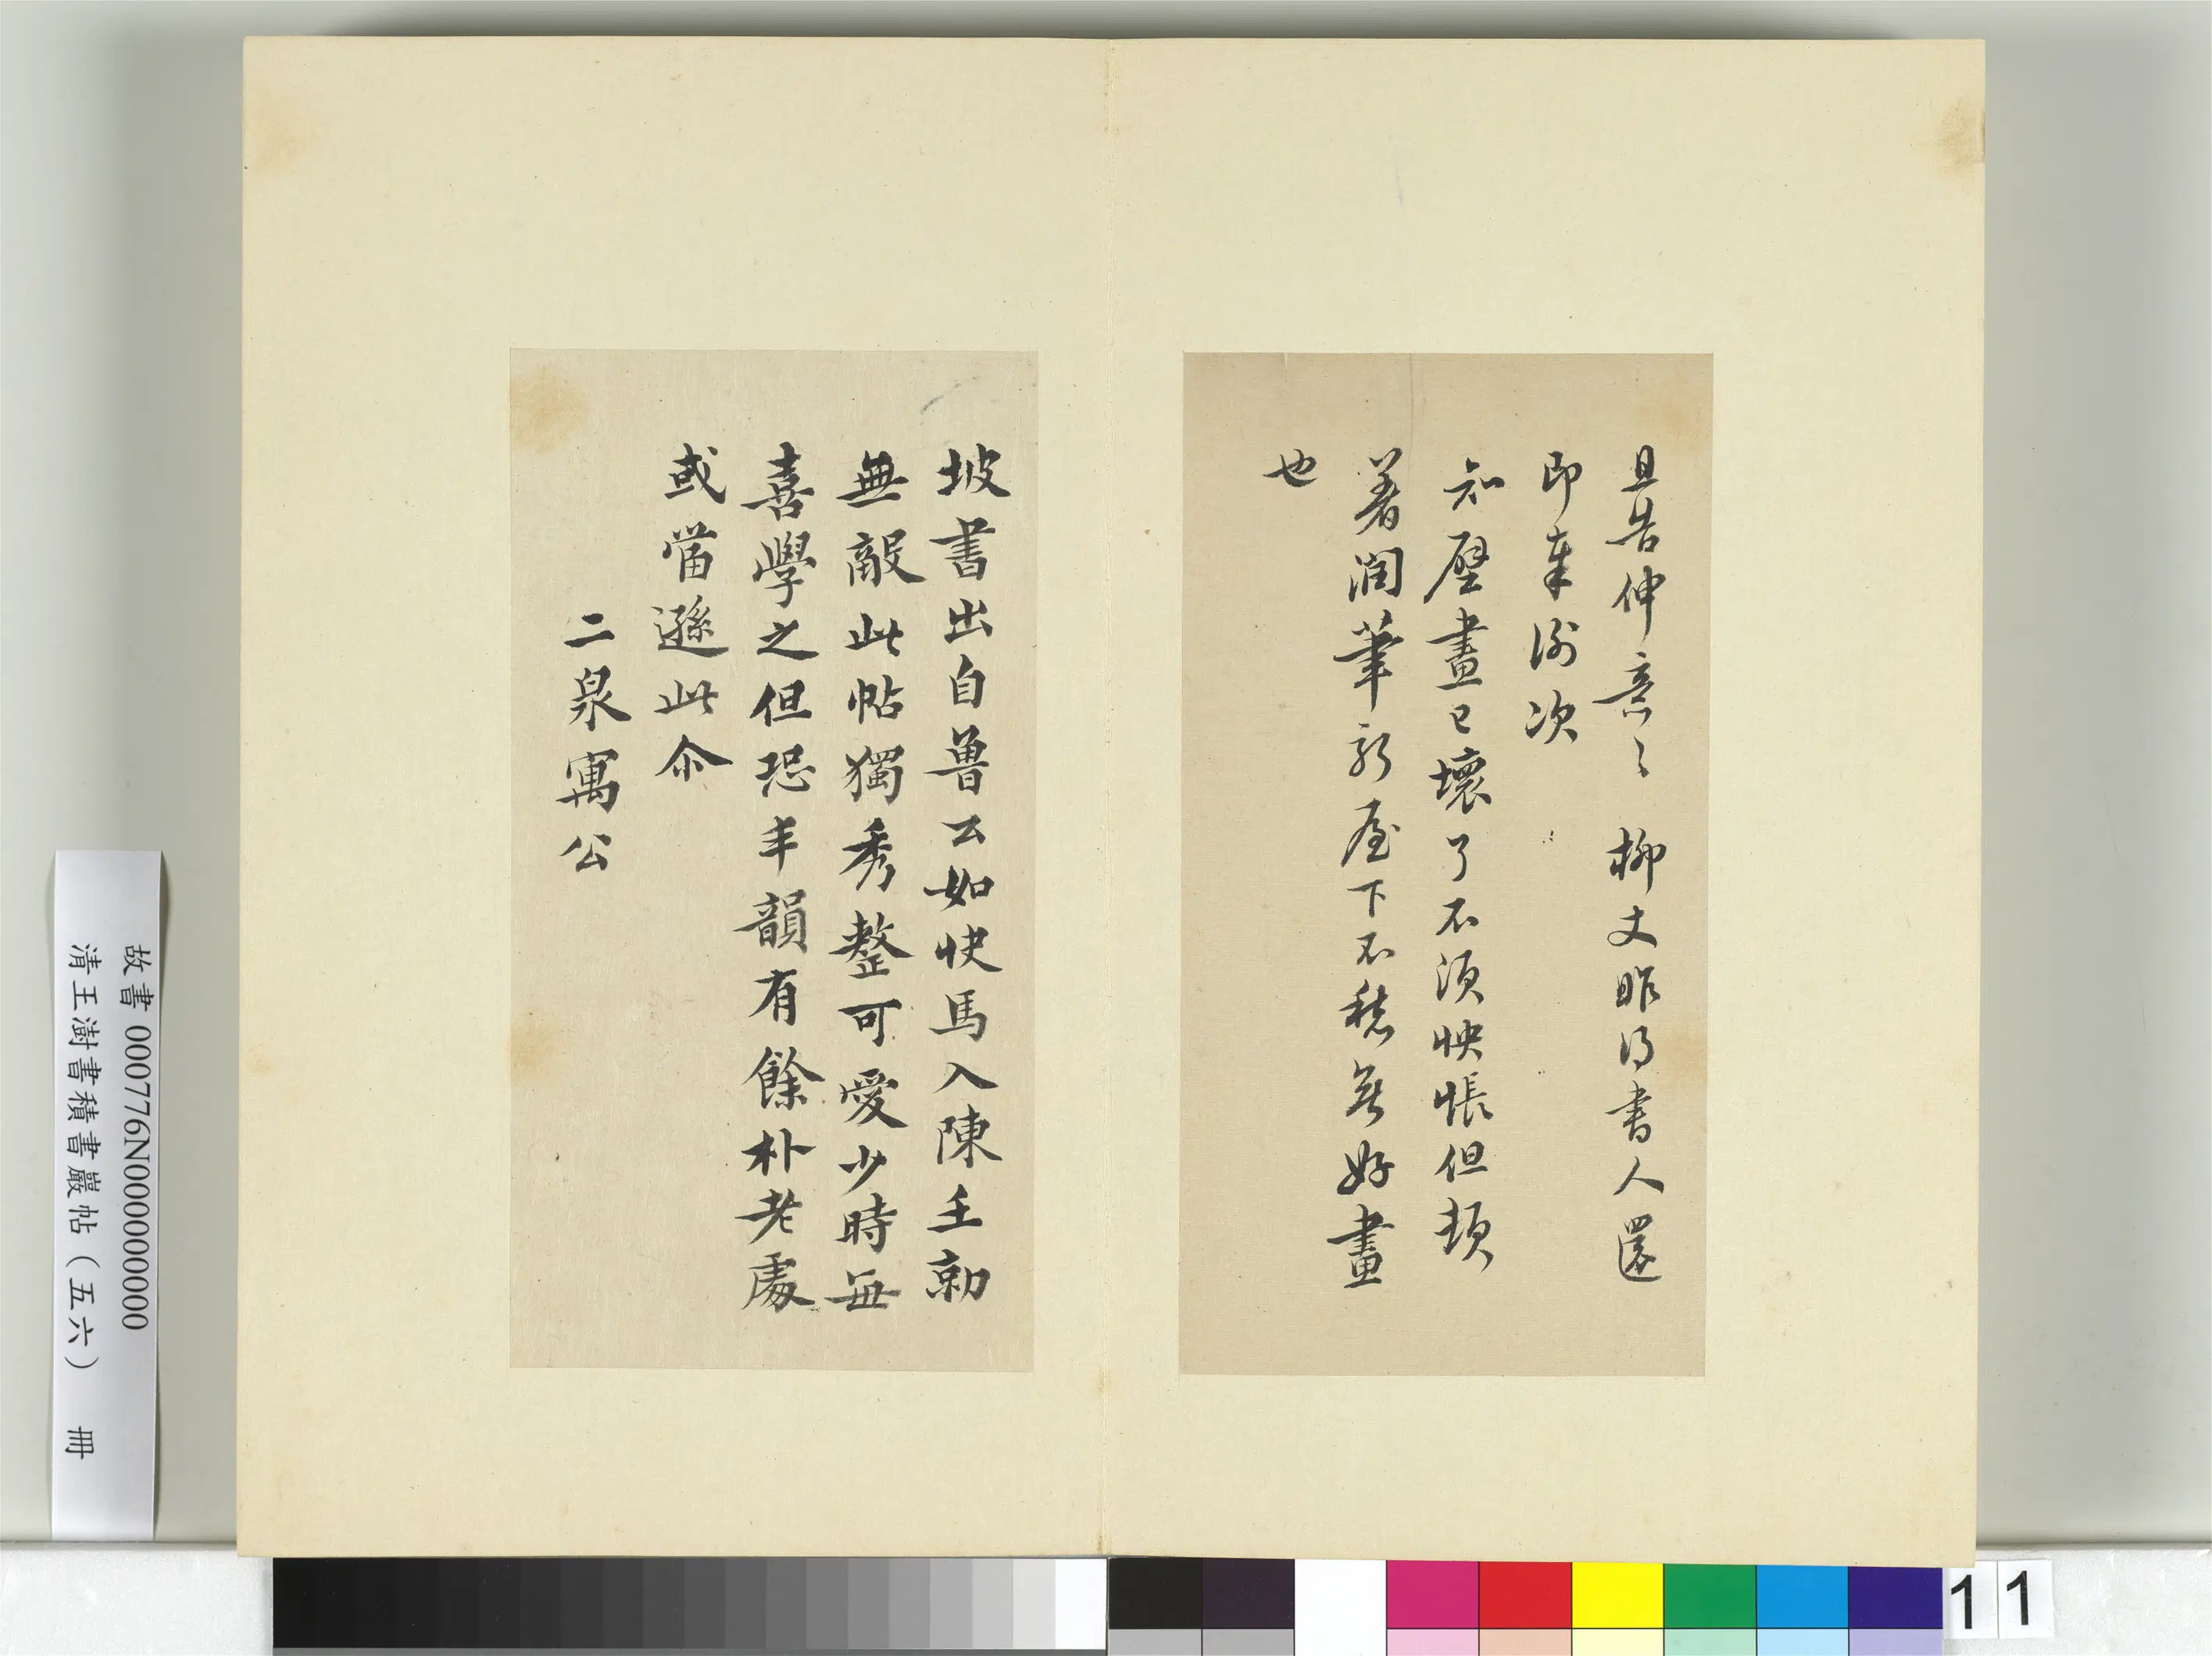 且告伸意〻柳丈昨得書人還
即奉謝次
知壁畫已壞了不須怏悵但頓
著潤筆新屋下不愁無好畫
也
坡書出自魯公如快馬入陳王勍
無敵此帖獨秀整可愛少時每
喜學之但恐丰韻有餘朴老處
或當遜此尒
二泉寓公
故書 000776N000000000
清王澍書積書巖帖（五六） 冊
11